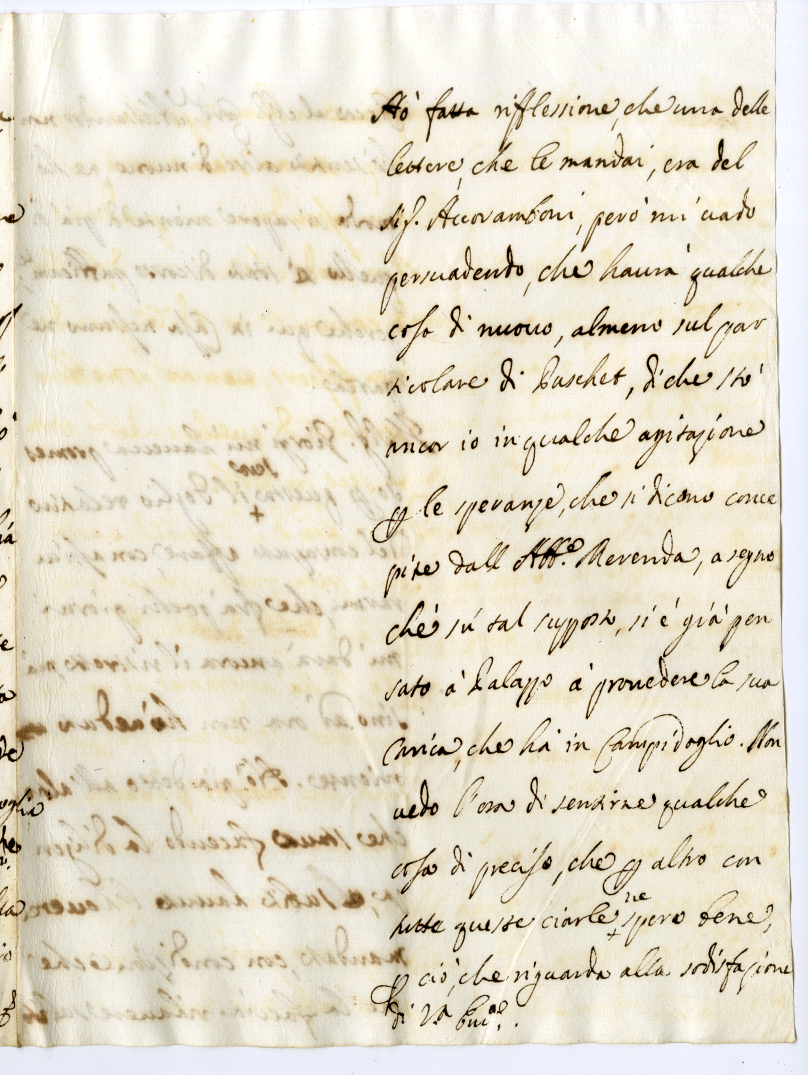 Hò fatta rifflessione, che una delle
lettere, che le mandai, era del
Sig. Accoramboni, però mi uado
persuadendo, che haurà qualche
cosa di nuouo, almeno sul par
ticolare di Puschet, di che stò
ancor io in qualche agitazione
p le speranze, che si dicono conce
pite dall Abb.e Merenda, a segno
che sù tal supposto, si è già pen
sato à Palazzo à prouedere la sua
Carica, che hà in Campidoglio. Non
uedo l'ora di sentirne qualche
cosa di preciso, che p altro con
tutte queste ciarle ne spero bene,
p ciò, che riguarda alla sodisfazione
di V.a